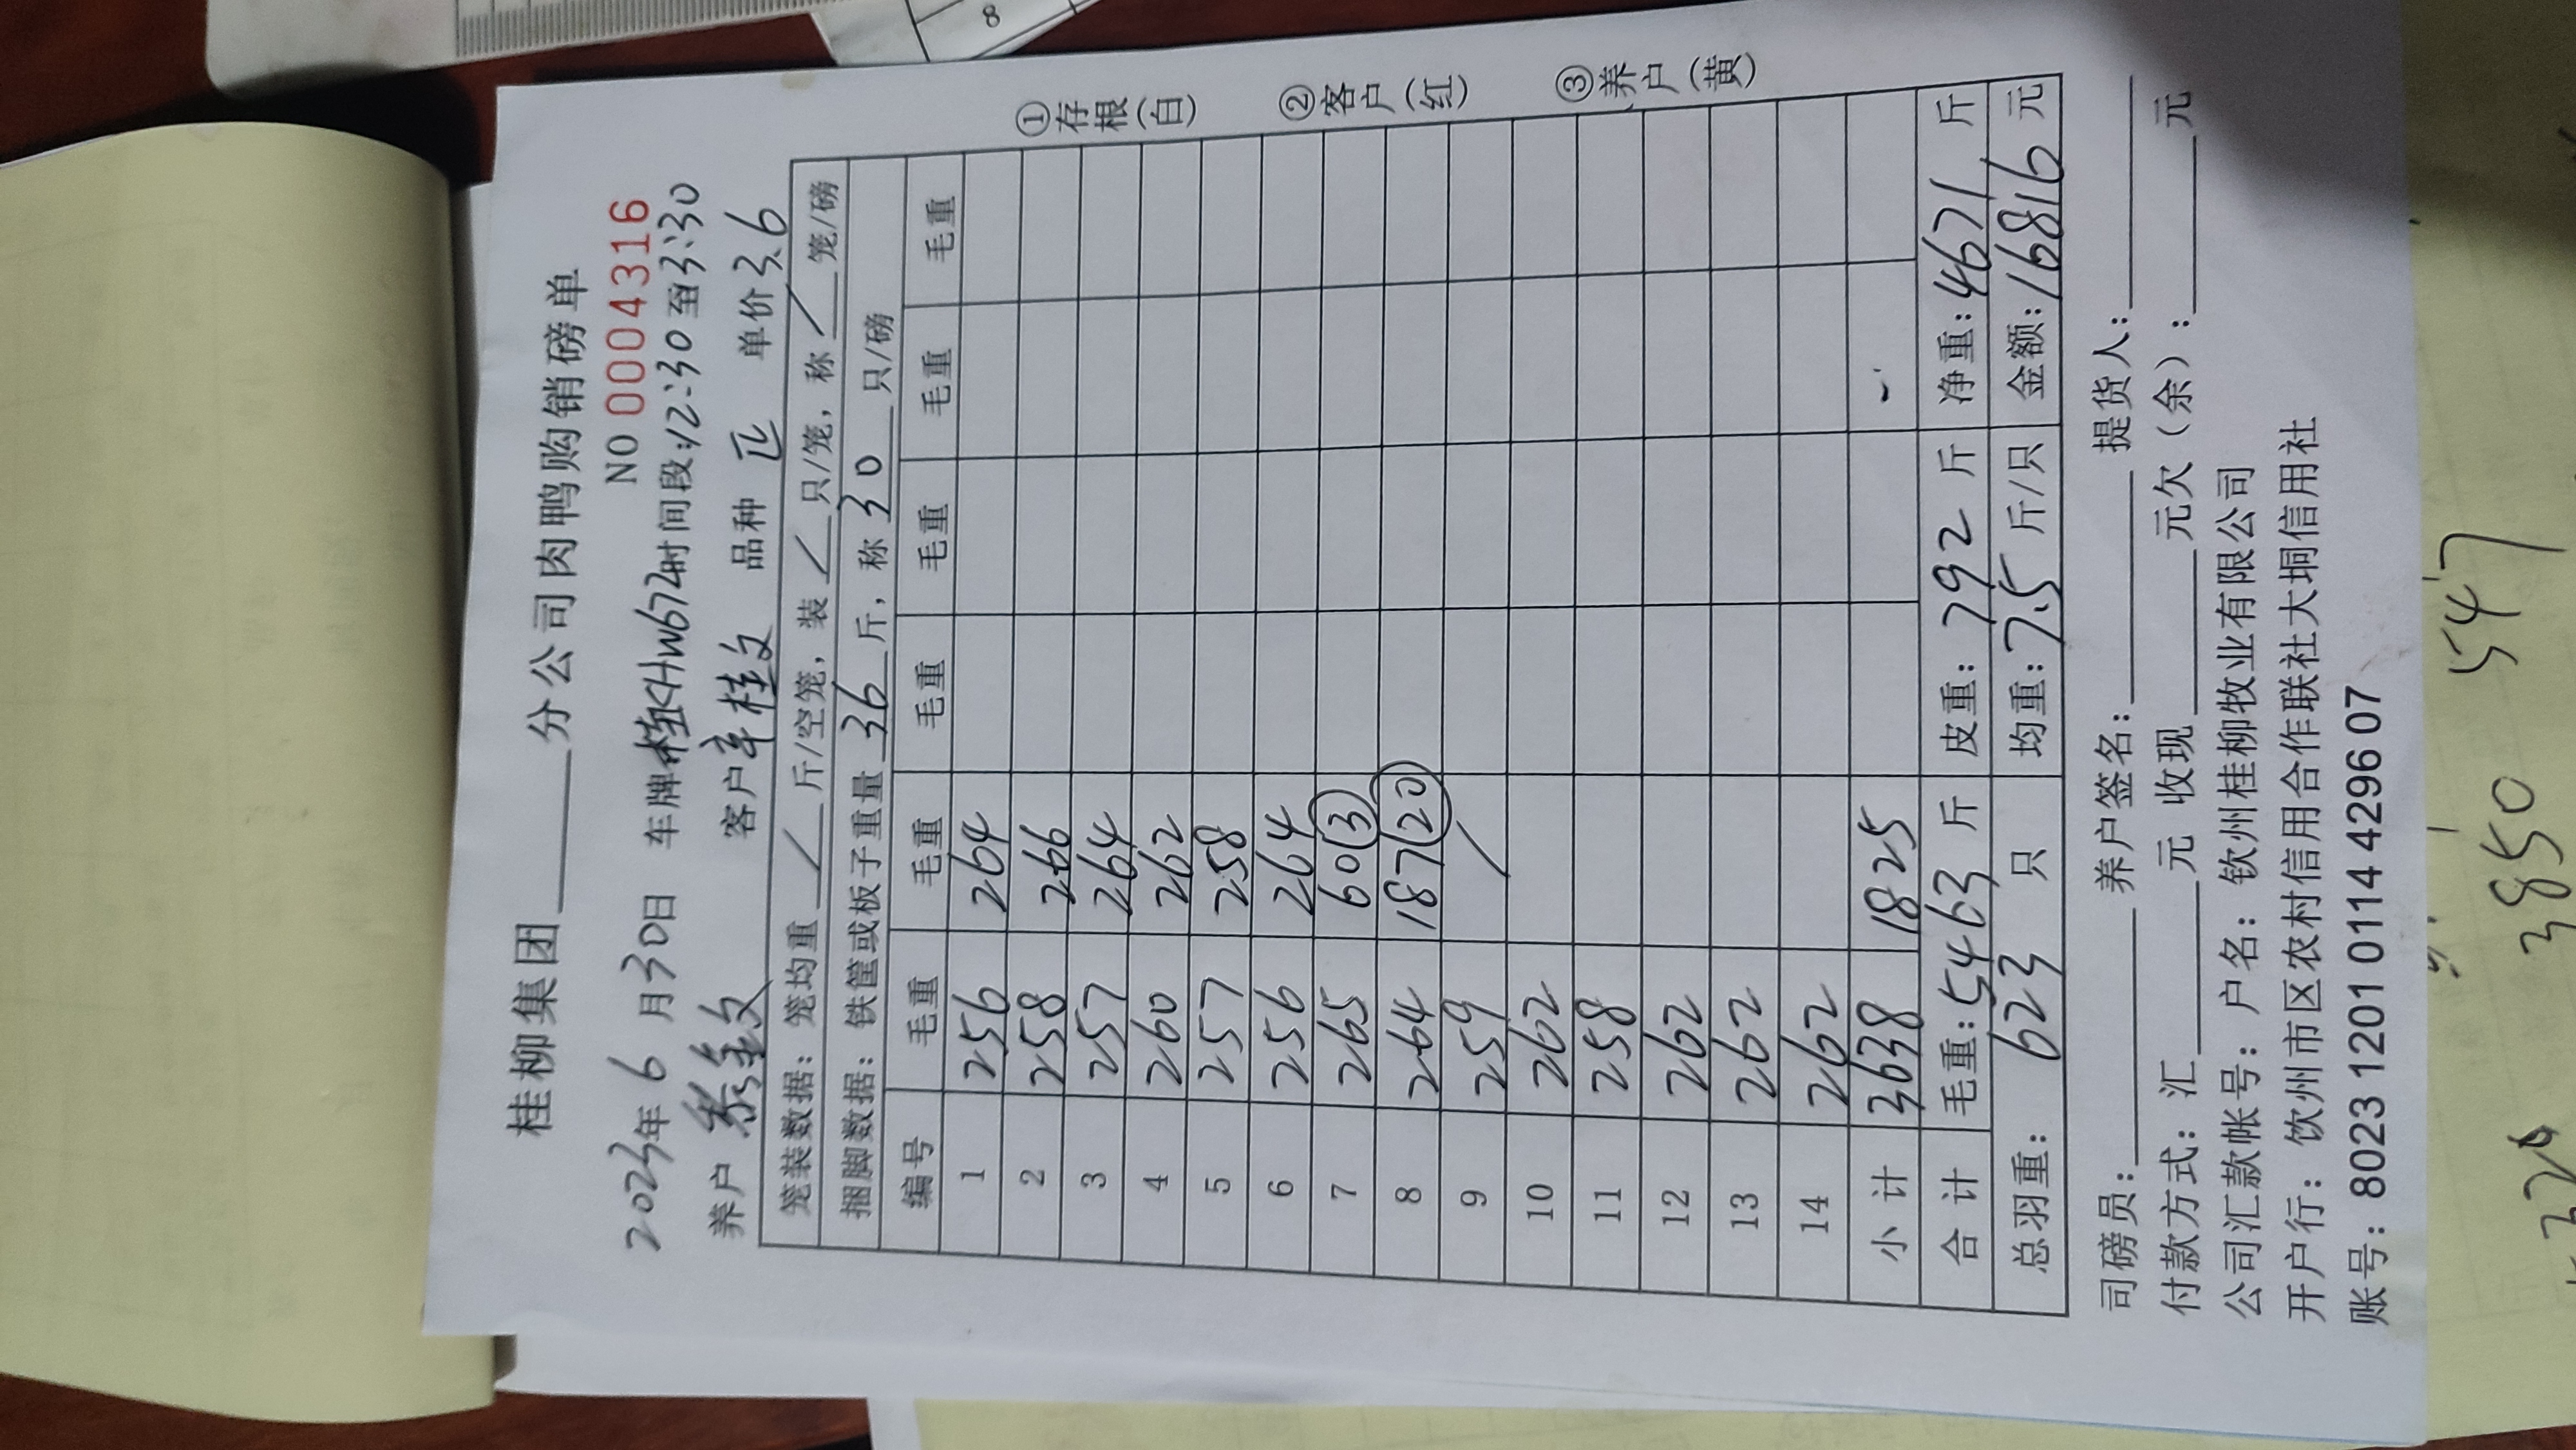 桂柳集团______分公司肉鸭购销磅单
NO 0004316
2023年6月30日 车牌桂KHW672 时间段:12:30至3:30
养户 客户 辛桂文 品种 单价3.6
笼装数据：笼均重 / 斤/空笼，装 / 只/笼，称 / 笼/磅
捆脚数据：铁筐或板子重量 36 斤，称 30 只/磅
编号 毛重 毛重 毛重 毛重 毛重 毛重
1 256 264
2 258 266
3 257 264
4 260 262
5 257 258
6 256 264
7 265 60(3)
8 264 187(20)
9 259 /
10 262
11 258
12 262
13 262
14 262
小计 3638 1825
合计 毛重：5463 斤 皮重：792 斤 净重：4671 斤
总羽重： 623 只 均重：7.5 斤/只 金额：16816 元
①存根(白) ②客户(红) ③养户(黄)
司磅员：______ 养户签名：______ 提货人：______
付款方式：汇______元 收现______元欠（余）：______元
公司汇款帐号：户名：钦州桂柳牧业有限公司
开户行：饮州市区农村信用合作联社大垌信用社
账号：8023 1201 0114 4296 07
8
547
3850